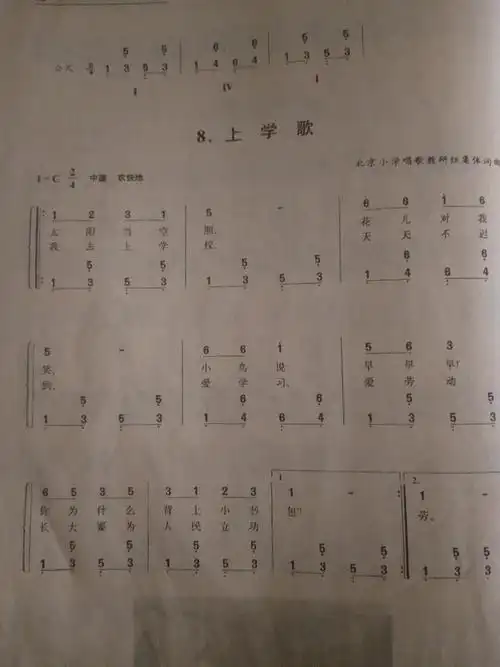 5 5 6 6 5 5
公式 1 3 5 3 1 4 6 4 1 3 5 3
I IV I
8. 上 学 歌
北京小学唱歌教研组集体词曲
1=C 2/4 中速 欢快地
1 2 3 1 5 - 6 6 1 6
太 阳 当 空 照, 花 儿 对 我
我 去 上 学 校, 天 天 不 迟
5 5 5 5 6 6
1 3 5 3 1 3 5 3 1 4 6 4
5 - 6 6 1 5 6 3
笑, 小 鸟 说 早 早 早!
到, 爱 学 习, 爱 劳 动
5 5 6 6 5 5
1 3 5 3 1 4 6 4 1 3 5 3
1. 2.
6 5 3 5 3 1 2 3 1 - 1 -
你 为 什 么 背 上 小 书 包" 劳。
长 大 要 为 人 民 立 功
5 5 5 5 5 5 5 5
1 3 5 3 1 3 5 3 1 3 5 3 1 3 5 3